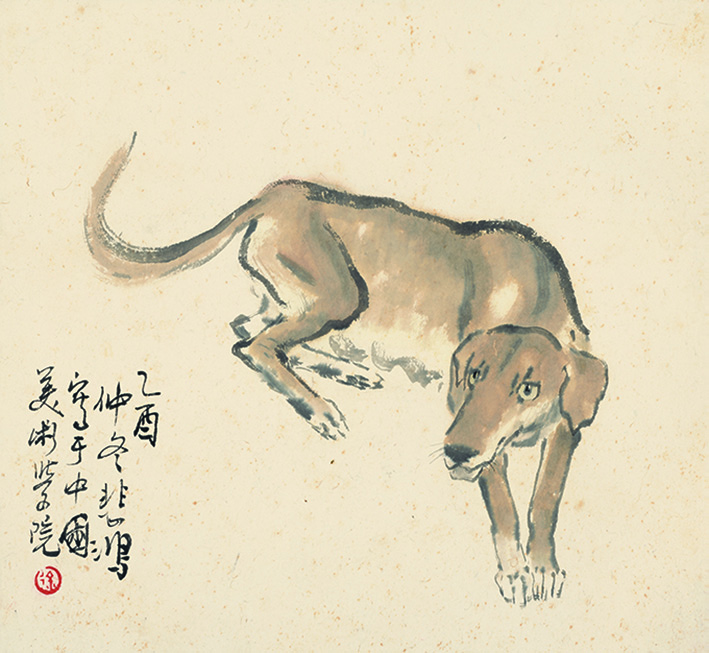 乙酉
仲冬悲鴻
寫于中國
美術學院
徐